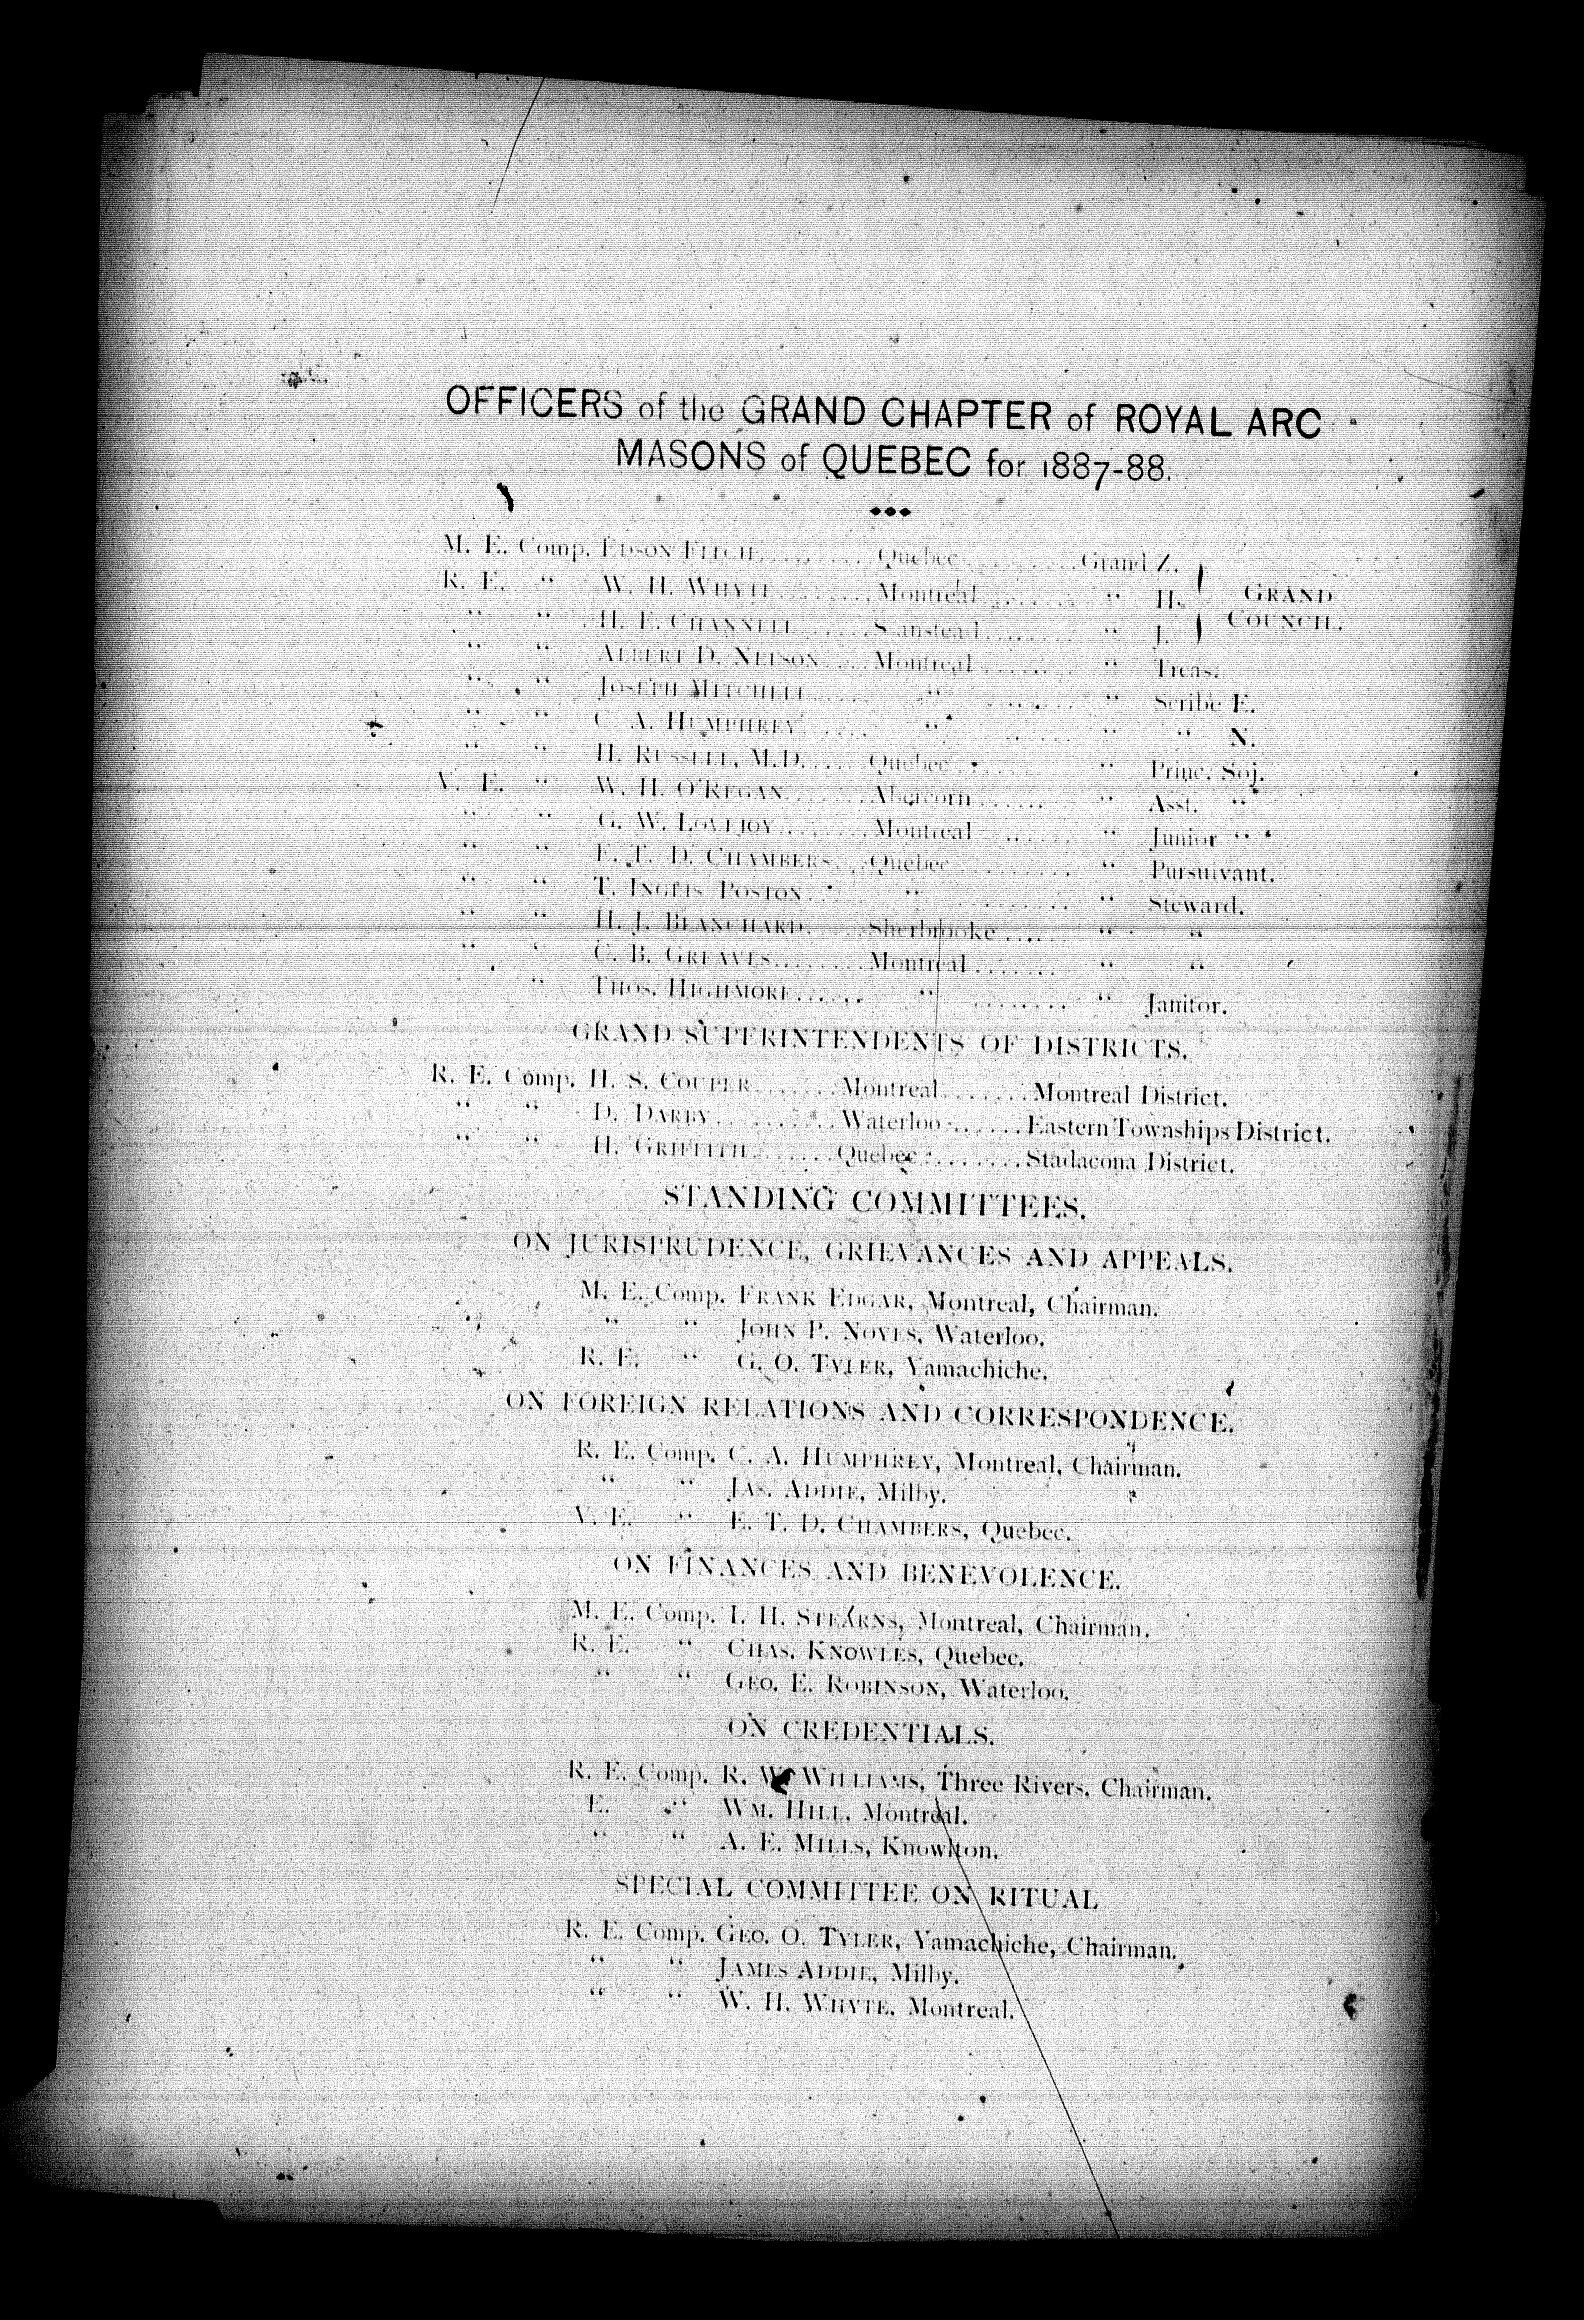 OFFICERS of the GRAND CHAPTER of ROYAL ARC
MASONS of QUEBEC for 1887-88.
M. E. Comp. EDSON FITCH......... Quebec..........Grand Z.
R. E. " W. H. WHYTE.........Montreal........ " H. GRAND
" " H. E. CHANNELL......Stanstead....... " J. COUNCIL.
" " ALBERT D. NELSON....Montreal....... " Treas.
" " JOSEPH MITCHELL..... " ....... " Scribe E.
" " C. A. HUMPHREY..... " ....... " " N.
" " H. RUSSELL, M.D......Quebec........ " Princ. Soj.
V. E. " W. H. O'REGAN........Abercorn...... " Asst. "
" " G. W. LOVEJOY........Montreal....... " Junior "
" " E. T. D. CHAMBERS...Quebec.......... " Pursuivant.
" " T. INGLIS POSTON... " ......... " Steward.
" " H. J. BLANCHARD......Sherbrooke...... " "
" " C. B. GREAVES........Montreal........ " "
" THOS. HIGHMORE...... " ........ " Janitor.
GRAND SUPERINTENDENTS OF DISTRICTS.
R. E. Comp. H. S. COUPER.......Montreal.......Montreal District.
" " D. DARBY..........Waterloo......Eastern Townships District.
" " H. GRIFFITH.......Quebec........Stadacona District.
STANDING COMMITTEES.
ON JURISPRUDENCE, GRIEVANCES AND APPEALS.
M. E. Comp. FRANK EDGAR, Montreal, Chairman.
" " JOHN P. NOYES, Waterloo.
R. E. " G. O. TYLER, Yamachiche.
ON FOREIGN RELATIONS AND CORRESPONDENCE.
R. E. Comp. C. A. HUMPHREY, Montreal, Chairman.
" " JAS. ADDIE, Milby.
V. E. " E. T. D. CHAMBERS, Quebec.
ON FINANCES AND BENEVOLENCE.
M. E. Comp. I. H. STEARNS, Montreal, Chairman.
R. E. " CHAS. KNOWLES, Quebec.
" " GEO. E. ROBINSON, Waterloo.
ON CREDENTIALS.
R. E. Comp. R. W. WILLIAMS, Three Rivers, Chairman.
E. " WM. HILL, Montreal.
" " A. E. MILLS, Knowlton.
SPECIAL COMMITTEE ON RITUAL
R. E. Comp. GEO. O. TYLER, Yamachiche, Chairman.
" " JAMES ADDIE, Milby.
" " W. H. WHYTE, Montreal.